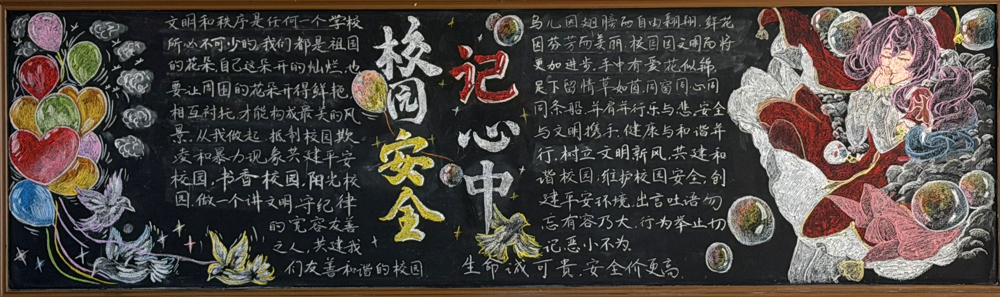 文明和秩序是任何一个学校
所必不可少的,我们都是祖国
的花朵自己这朵开的灿烂,也
要让周围的花朵开得鲜艳,
相互衬托,才能构成最美的风
景,从我做起,抵制校园欺
凌和暴力现象共建平安
校园,书香校园,阳光校
园,做一个讲文明,守纪律
的宽容友善
之人,共建我
们友善和谐的校园
校园
安全
记
心
中
鸟儿因翅膀而自由翱翔,鲜花
因芬芳而美丽,校园因文明而将
更加进步,手中有爱花似锦,
足下留情草如茵,同留同心同
同条船,并肩并行乐与悲,安全
与文明携手,健康与和谐并
行,树立文明新风,共建和
谐校园,维护校园安全,创
建平安环境,出言吐语勿
忘有容乃大,行为举止切
记恶小不为.
生命诚可贵,安全价更高.